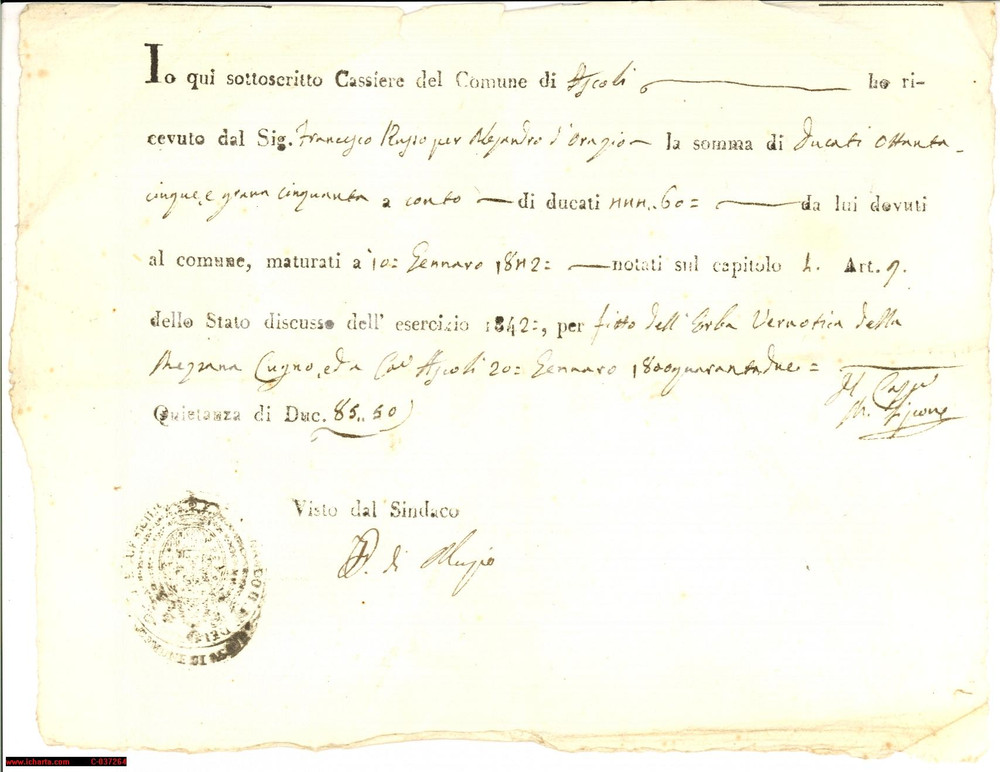 Io qui sottoscritto Cassiere del Comune di Ascoli ho ri-
cevuto dal Sig. Francesco Russo per Alesandro d'Orazio la somma di Ducati ottanta
cinque, e grana cinquanta a conto di ducati 60 = da lui dovuti
al comune, maturati a 10 = Gennaro 1842 = notati sul capitolo Art. 9.
dello Stato discusso dell' esercizio 1842 =, per fitto dell' Erba Vernotica della
Mezzana Cugno, Ascoli 20 = Gennaro 1800quarantadue =
Il Cass.
Quietanza di Duc. 85.. 50
Visto dal Sindaco
www.icharta.com C-037264